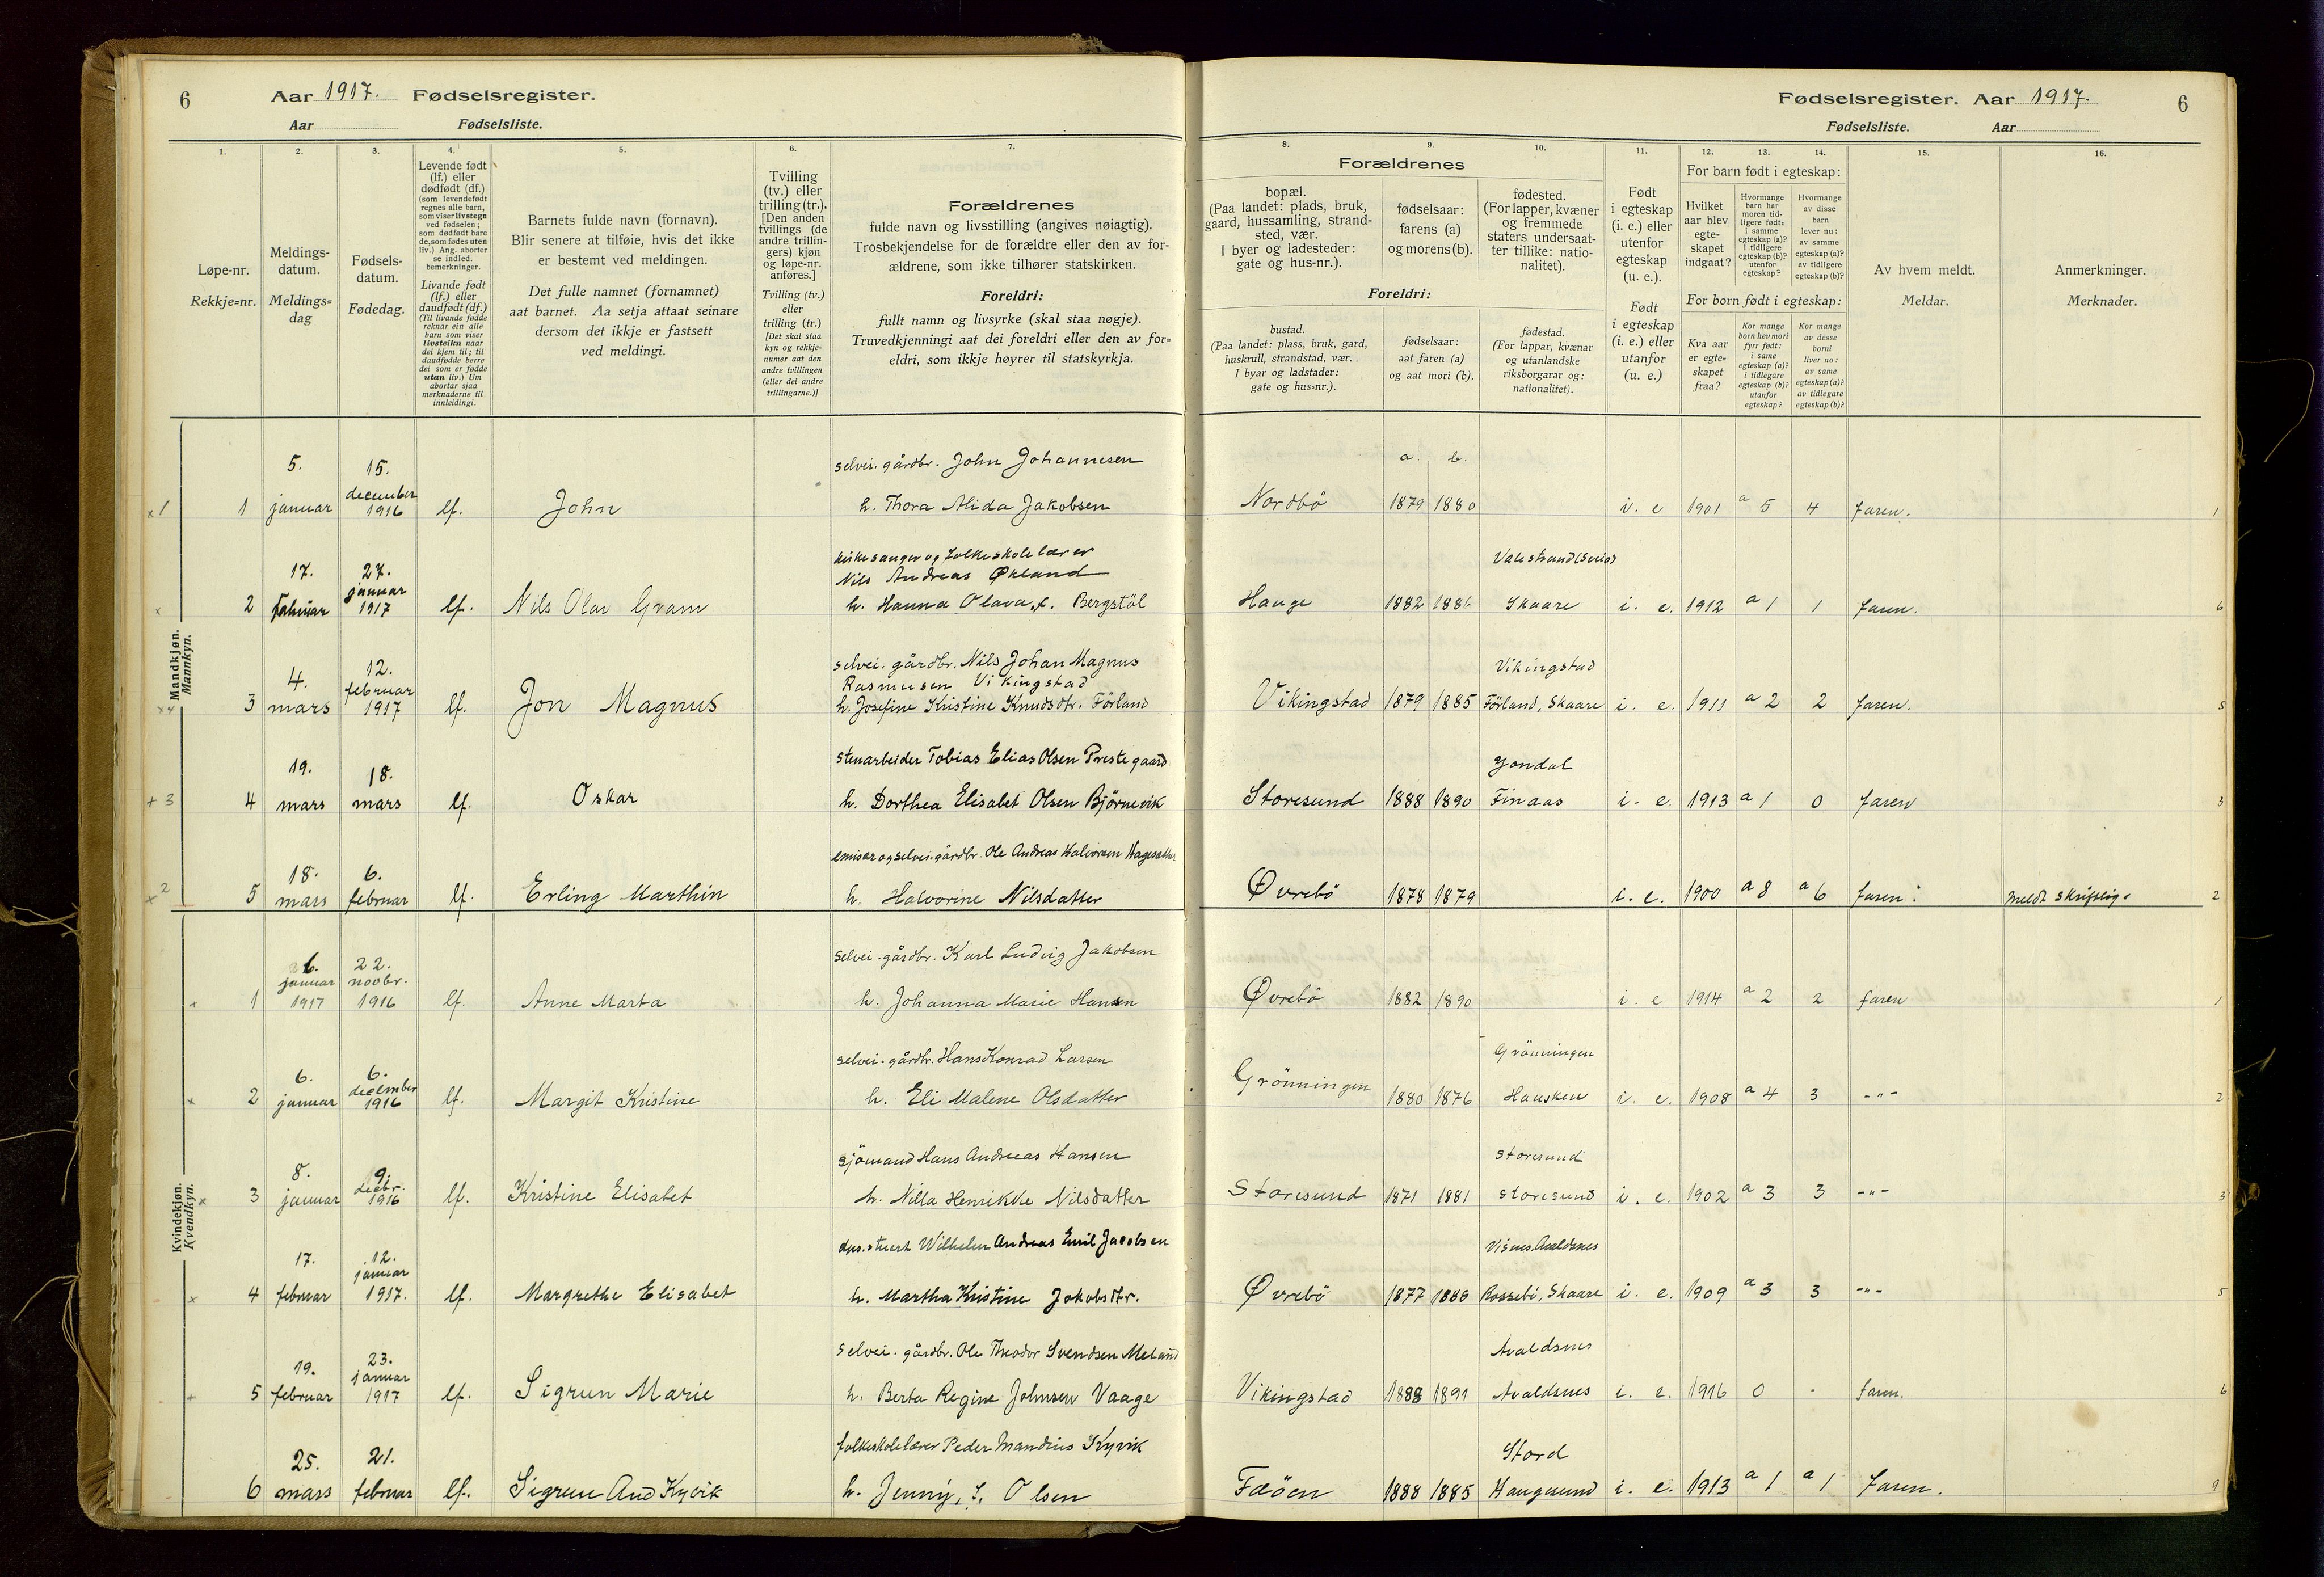 6 Aar 1917. Fødselsregister.
Aar Fødselsliste.
Fødselsregister. Aar 1917. 6
Fødselsliste. Aar
1. 2. 3. 4. 5. 6. 7.
Løpe-nr.
Rekkje=nr.
Meldings-
datum.
Meldings=
dag
Fødsels-
datum.
Fødedag.
Levende født
(lf.) eller
dødfødt (df.)
(som levendefødt
regnes alle barn,
som viser livstegn
ved fødselen;
som dødfødt bare
de, som fødes uten
liv.) Ang. aborter
se indled.
bemerkninger.
Livande født
(lf.) eller
daudfødt (df.)
(Til livande fødde
reknar ein alle
barn som viser
livsteikn naar
dei kjem til; til
daudfødde berre
dei som er fødde
utan liv.) Um
abortar sjaa
merknaderne til
innleidingi.
Barnets fulde navn (fornavn).
Blir senere at tilføie, hvis det ikke
er bestemt ved meldingen.
Det fulle namnet (fornamnet)
aat barnet. Aa setja attaat seinare
dersom det ikkje er fastsett
ved meldingi.
Tvilling
(tv.) eller
trilling (tr.).
[Den anden
tvillings (de
andre trillin-
gers) kjøn
og løpe-nr.
anføres.]
Tvilling (tv.)
eller
trilling (tr.)
[Det skal staa
kyn og rekkje-
numer aat den
andre tvillingen
(eller dei andre
trillingarne.)]
Forældrenes
fulde navn og livsstilling (angives nøiagtig).
Trosbekjendelse for de forældre eller den av for-
ældrene, som ikke tilhører statskirken.
Foreldri:
fullt namn og livsyrke (skal staa nøgje).
Truvedkjenningi aat dei foreldri eller den av for=
eldri, som ikkje høyrer til statskyrkja.
8. 9. 10. 11. 12. 13. 14. 15. 16.
Forældrenes
bopæl.
(Paa landet: plads, bruk,
gaard, hussamling, strand-
sted, vær.
I byer og ladesteder:
gate og hus-nr.).
fødselsaar:
farens (a)
og morens (b).
fødested.
(For lapper, kvæner
og fremmede
staters undersaat-
ter tillike: natio-
nalitet).
Foreldri:
bustad.
(Paa landet: plass, bruk, gard,
huskrull, strandstad, vær.
I byar og ladstader:
gate og hus=nr.).
fødselsaar:
aat faren (a)
og aat mori (b).
fødestad.
(For lappar, kvænar
og utanlandske
riksborgarar og:
nationalitet).
Født
i egteskap
(i. e.) eller
utenfor
egteskap
(u. e.).
Født
i egteskap
(i. e.) eller
utanfor
(u. e.)
For barn født i egteskap:
Hvilket
aar blev
egte-
skapet
indgaat?
Hvormange
barn har
moren tid-
ligere født:
i samme
egteskap (a)?
i tidligere
egteskap (b)?
utenfor
egteskap?
Hvormange
av disse
barn
lever nu:
av samme
egteskap (a)?
av tidligere
egteskap (b)?
For born født i egteskap:
Kva aar
er egte=
skapet
fraa?
Kor mange
born hev mori
fyrr født:
i same
egteskap (a)?
i tidlegare
egteskap (b)?
utanfor
egteskap?
Kor mange
av desse
borni
liver no:
av same
egteskap (a)?
av tidlegare
egteskap (b)?
Av hvem meldt.
Meldar.
Anmerkninger.
Merknader.
Mandkjøn.
Mannkyn.
5. 15. selvei. gårdbr. John Johannesen a. b.
x1 1 januar december 1916 lf. John h. Thora Alida Jakobsen Nordbö 1879 1880 i. e 1901 a 5 4 faren. 1
kirkesanger og folkeskolelærer
17. 27. januar Nils Andreas Økland Valestrand (Sveio)
x 2 februar 1917 lf. Nils Olav Gram h. Hanna Olava, f. Bergstöl Hauge 1882 1886 Skaare i. e. 1912 a 1 1 faren. 6
selvei. gårdbr. Nils Johan Magnus
4. 12. februar Rasmusen Vikingstad Vikingstad
x4 3 mars 1917 lf. Jon Magnus h. Josefine Kristine Knudsdtr. Förland Vikingstad 1879 1885 Förland, Skaare i. e. 1911 a 2 2 faren. 5
19. 18. stenarbeider Tobias Elias Olsen Prestegaard Jondal
+ 3 4 mars mars lf. Oskar h. Dorthea Elisabet Olsen Björnevik Storesund 1888 1890 Finaas i. e. 1913 a 1 0 faren 3
18. 6. emisær og selvei. gårdbr. Ole Andreas Halvorsen
x2 5 mars februar lf. Erling Marthin h. Halvorine Nilsdatter Øvrebö 1878 1879 i. e. 1900 a 8 a 6 faren. meldt skriftlig. 2
Kvindekjøn.
Kvendkyn.
6. januar 22. novbr. selvei. gårdbr. Karl Ludvig Jakobsen
+ 1 1917 1916 lf. Anne Marta h. Johanna Marie Hansen Øvrebö 1882 1890 i. e 1914 a 2 2 faren 1
6. 6. december selvei. gårdbr. Hans Konrad Larsen Grönningen
x 2 januar 1916 lf. Margit Kristine h. Eli Malene Olsdatter Grönningen 1880 1876 Hausken i. e. 1908 a 4 3 -"- 2
8. 9. decbr. sjömand Hans Andreas Hansen Storesund
x 3 januar 1916 lf. Kristine Elisabet h. Nilla Henrikke Nilsdatter Storesund 1871 1881 Storesund i. e. 1902 a 3 3 -"- 3
17. 12. januar stuert Wilhelm Andreas Emil Jacobsen Visnes, Avaldsnes
x 4 februar 1917. lf. Margrethe Elisabet h. Martha Kristine Jakobsdtr. Øvrebö 1877 1886 Rossebö, Skaare i. e. 1909 a 3 3 -"- 5
19. 23. januar selvei. gårdbr. Ole Theodor Svendsen Meland Avaldsnes
+ 5 februar 1917 lf. Sigrun Marie h. Berta Regine Johnsen Vaage Vikingstad 1888 1891 Avaldsnes i. e. 1916 0 - faren. 6
25. 21. folkeskolelærer Peder Mandrius Kyvik Stord
6 mars februar lf. Sigrun Aud Kyvik h. Jenny, f. Olsen Fæöen 1888 1885 Haugesund i. e. 1913 a 1 a 1 faren. 9